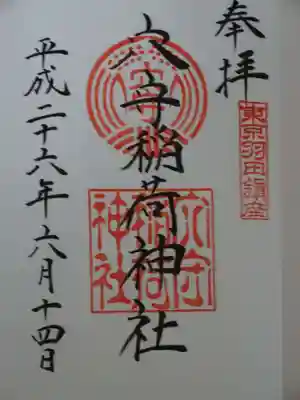 奉拝
東京羽田鎮座
穴守稲荷神社
穴守
稲荷
神社
平成二十六年六月十四日